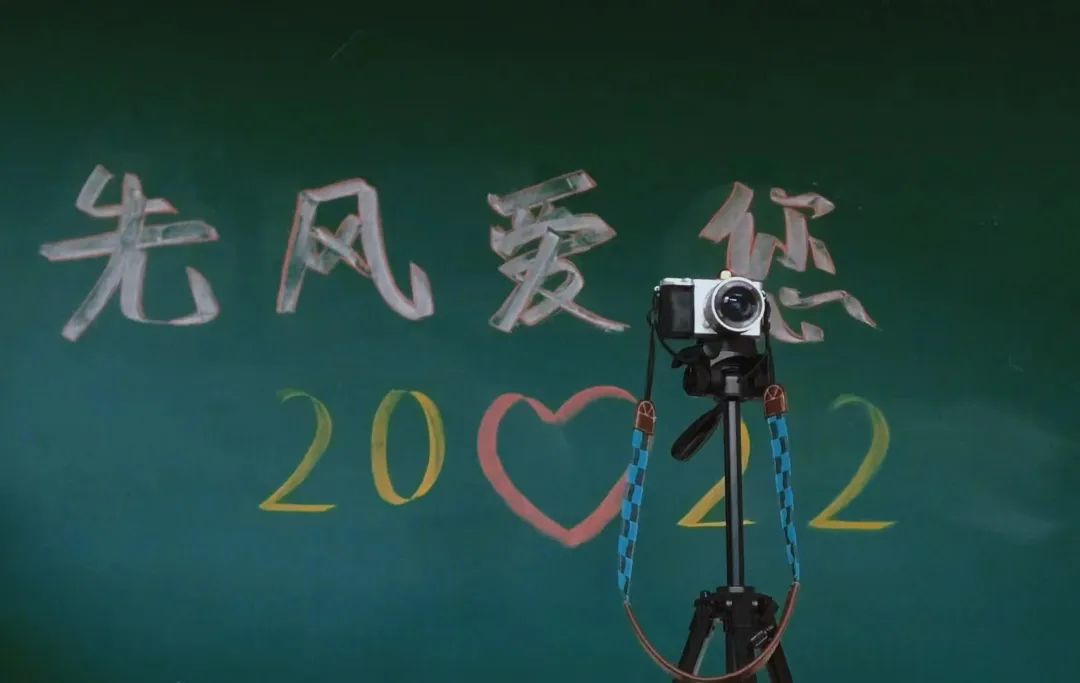 先风爱您
20♡22